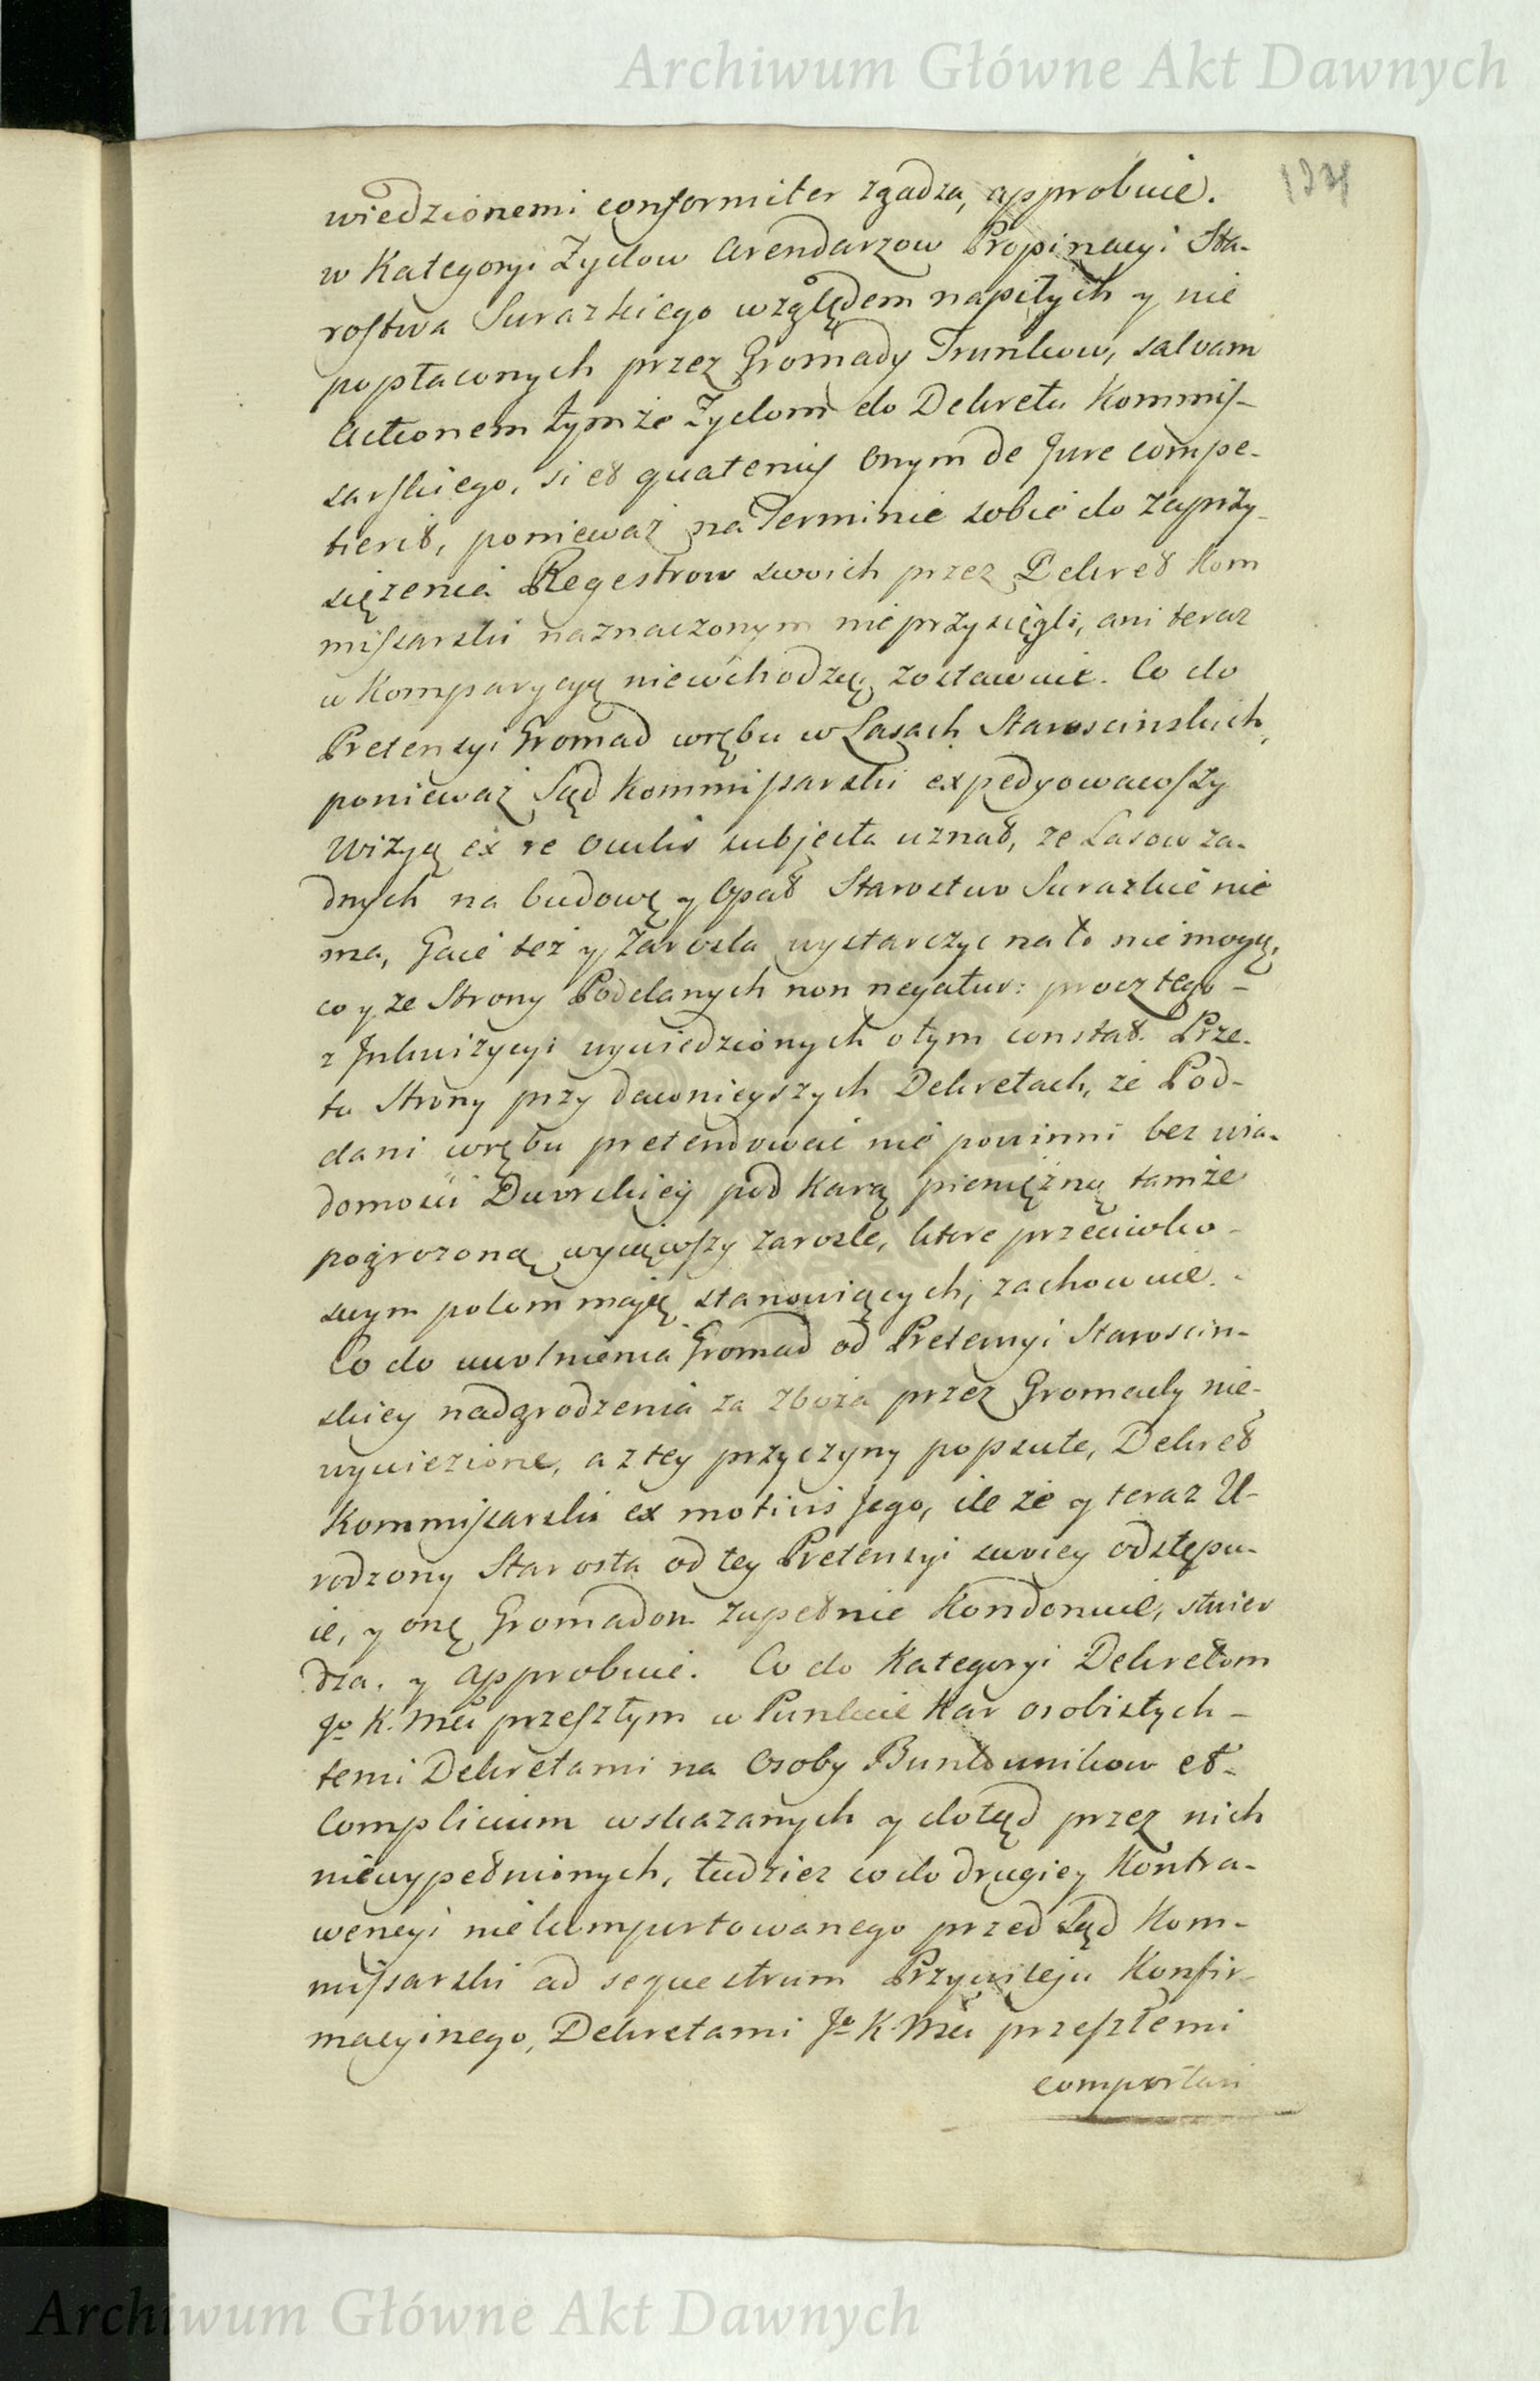 Archiwum Główne Akt Dawnych
wiedzionemi conformiter zgadza, approbuie.
w Kategoryi Żydow Arendarzow Propinacyi Sta-
rostwa Surazkiego względem napitych y nie
popłaconych przez Gromady Trunkow, salvam
Actionem tymże Żydom do Dekretu Kommis-
sarskiego, si et quatenus Onym de Jure compe-
tierit, ponieważ na Terminie sobie do zaprzy-
siężenia Regestrow swoich przez Dekret Kom
missarski naznaczonym nie przysięgli, ani teraz
w Komparycyą niewchodzą, zostawuie. Co do
Pretensyi Gromad wrębu w Lasach Staroscinskich,
ponieważ Sąd Kommissarski expedyowawszy
Wizyą ex re oculis subjecta uznał, ze Lasow za-
dnych na budowę y Opał Starostwo Surazkie nie
ma, Gaie też y Zarosla wystarczyc na to nie mogą,
co y ze Strony Poddanych non negatur: procz tego -
z Inkwizycyi wywiedzionych o tym constat. Prze-
to Strony przy dawnieyszych Dekretach, że Pod-
dani wrębu pretendować nie powinni bez wia-
domości Dworskiey pod Karą pieniężną tamże
pogrozoną wyciąwszy zarosle, ktore przeciwko -
swym polom mają stanowiących, zachowuie.
Co do uwolnienia Gromad od Pretensyi Staroscin-
skiey nadgrodzenia za Zboża przez Gromady nie-
wywiezione, a z tey przyczyny popsute, Dekret
Kommissarski ex motivis Jego, ile że y teraz U-
rodzony Starosta od tey Pretensyi swoiey odstępu-
ie, y onę Gromadom zupełnie Kondonuie, stwier
dza, y approbuie. Co do Kategoryi Dekretom
Jo K. Mci przeszłym w Punkcie Kar osobistych -
temi Dekretami na Osoby Buntownikow et -
Complicium wskazanych y dotąd przez nich
niewypełnionych, tudziez co do drugiey Kontra-
wencyi niekomportowanego przed Sąd Kom-
missarski ad sequestrum Przywileju Konfir-
macyinego, Dekretami Jo K. Mci przeszłemi
comportari
Archiwum Główne Akt Dawnych